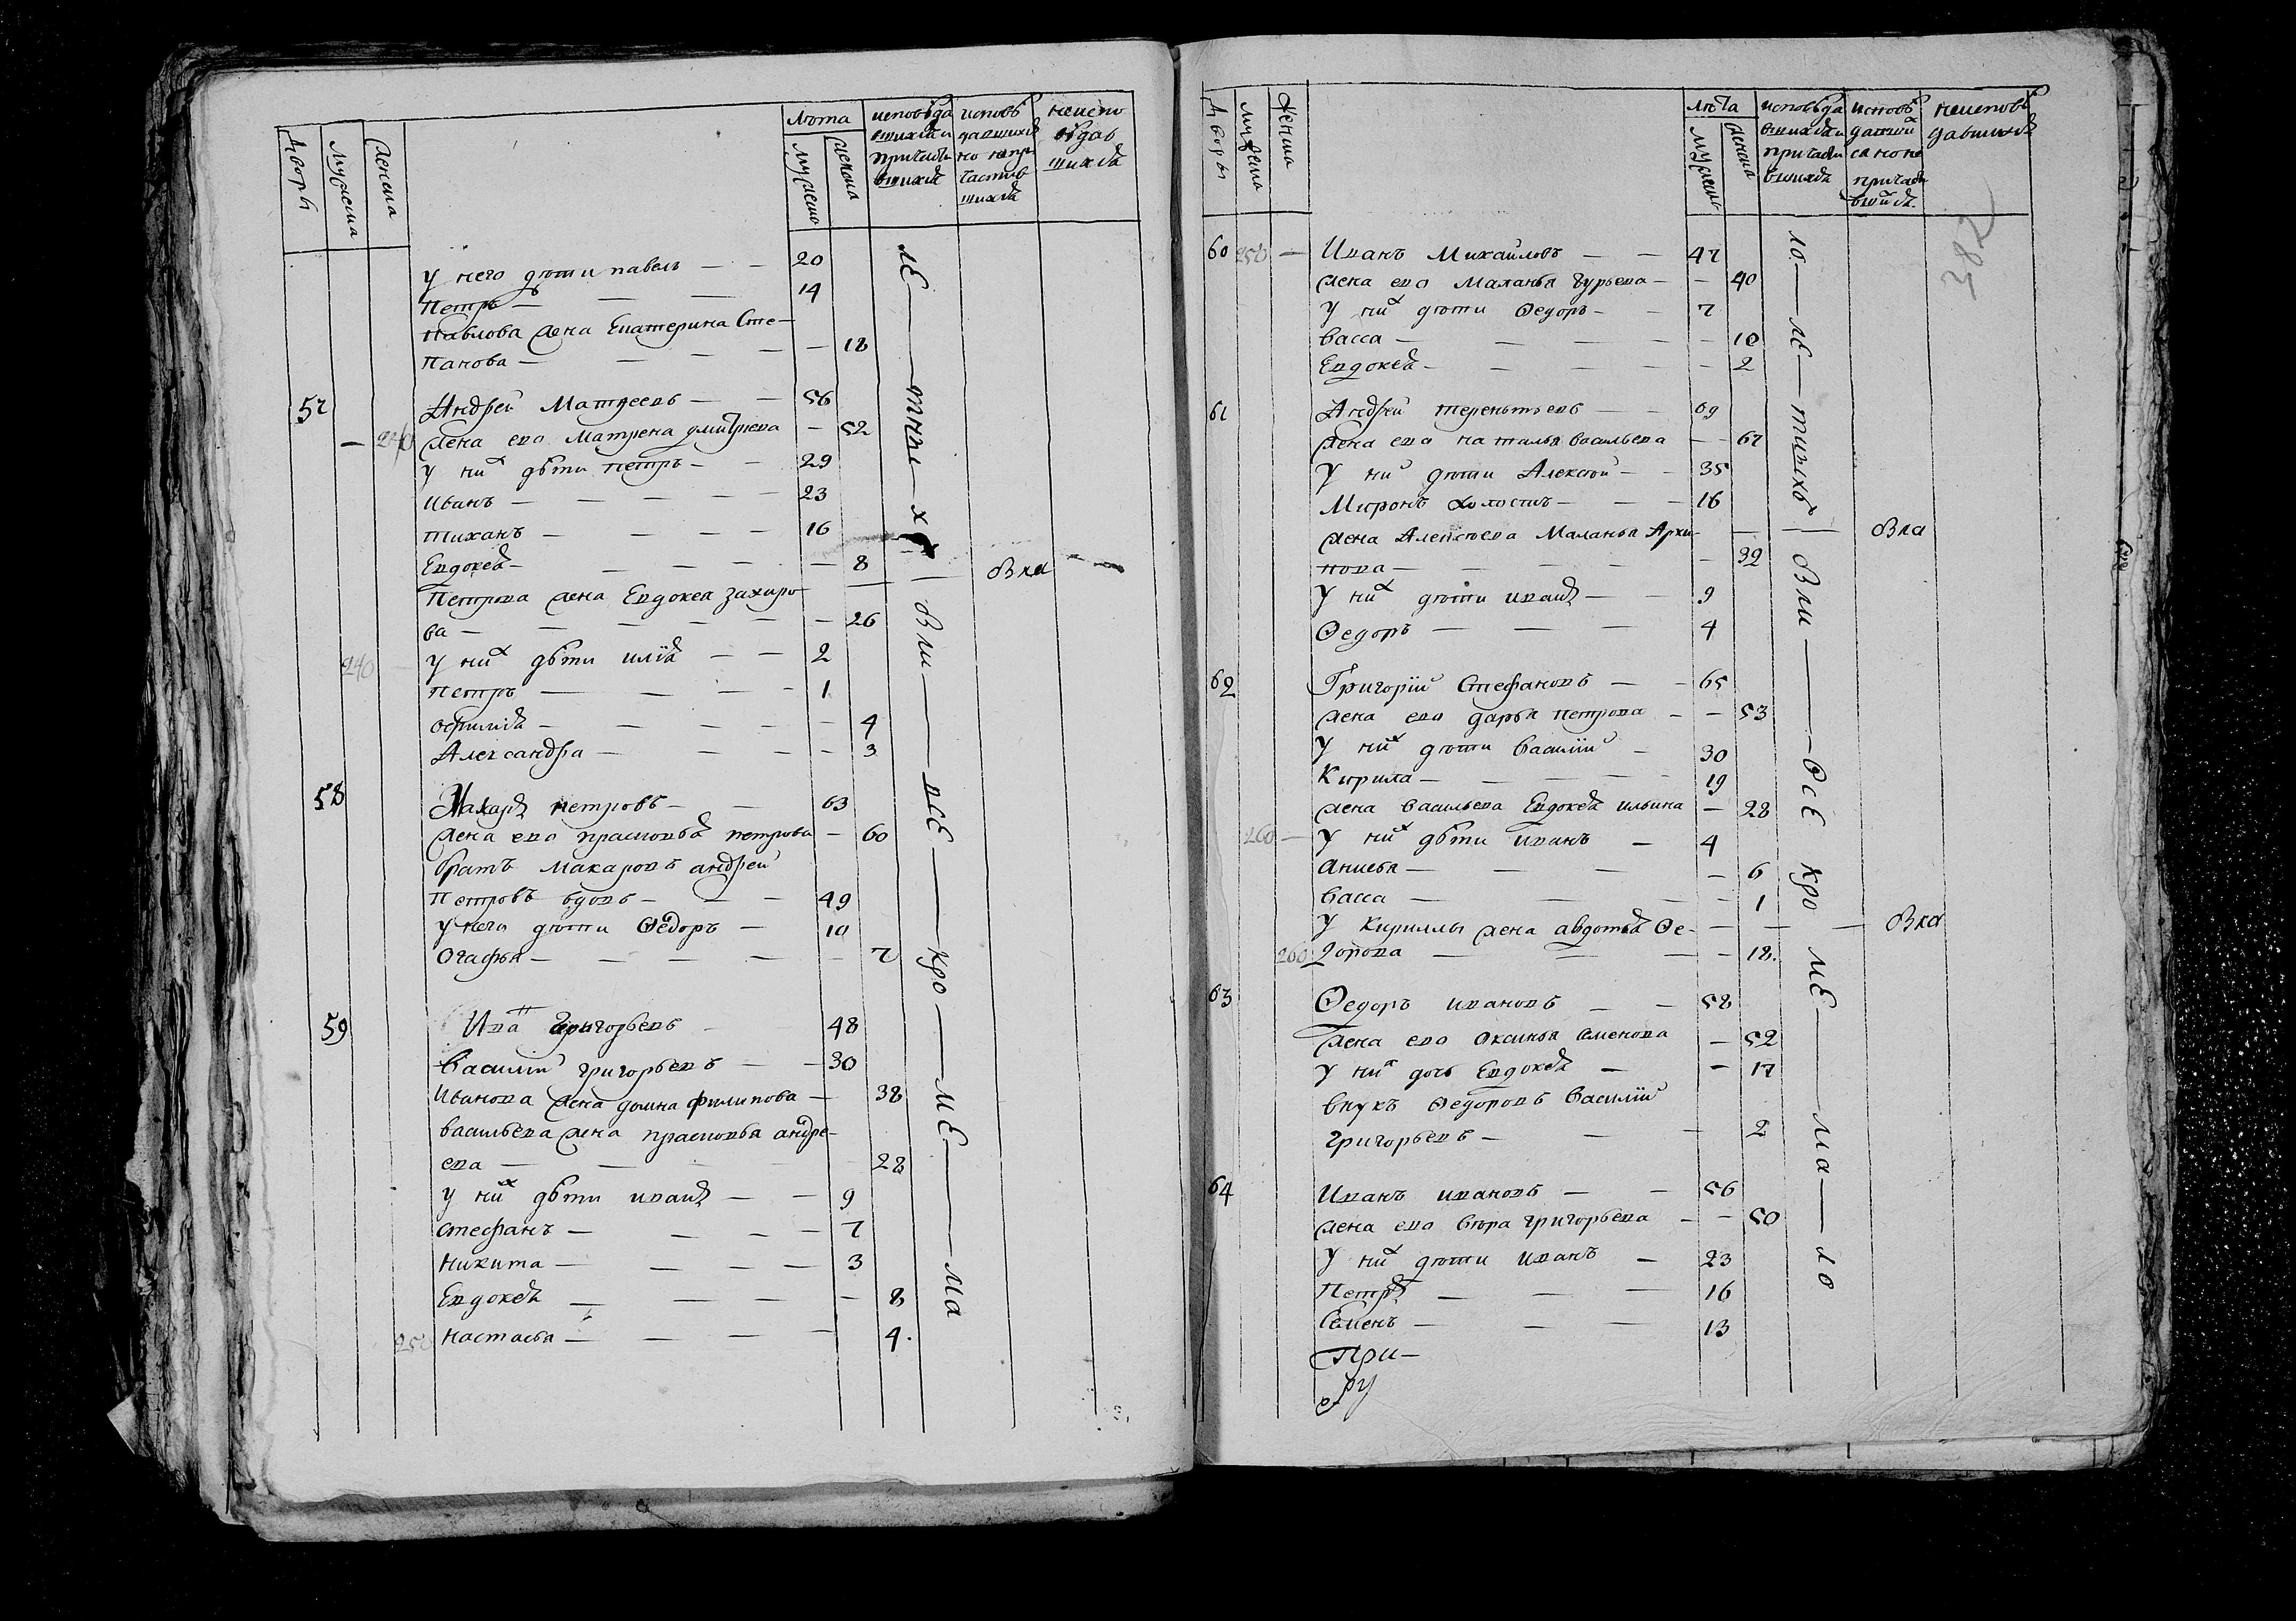 Дворы Мужеска Женска
Лѣта
мужеска женска
исповѣда
вшихся и
причасти
вшихся
исповѣ
давшихся
но непри
частив
шихся
неиспо
вѣдав
шихся
У него дѣти павелъ — — 20
Петръ — — — 14
Павлова жена Екатерина Сте—
панова — — — — — 18
57 Андрей Матвеевъ — — 56
— 240 жена ево Матрена дмитриева — 52
у них дѣти петръ — — 29
Иванъ — — — — — 23
тиханъ — — — — 16
Евдокея — — — — — 8
Вка
Петрова жена Евдокея захаро
ва — — — — — — 26
240 у них дѣти илія — — 2
петръ — — — — 1
офимія — — — — — 4
Александра — — — — 3
58 Макаръ петровъ — — 63
жена ево прасковья петрова — 60
братъ Макаровъ андрей
Петровъ вдовъ — — — 49
у него дѣти Ѳедоръ — 10
Огафья — — — — — 7
59 Иванъ Григорьевъ — 48
Василий григорьевъ — — 30
Иванова жена домна филипова — 38
васильева жена прасковья андре—
ева — — — — — 28
у них дѣти иванъ — — 9
стефанъ — — — — 7
Никита — — — — 3
Евдокея — — — — — 8
250 настасья — — — — 4.
лѣ — тних — х
Вли — все — кро — мѣ — ма
Дворы Мужеска Женска
лѣта
мужеска женска
исповѣда
вшихся и
причасти
вшихся
исповѣ
давший
ся но не
причасти
вшийся.
неисповѣ
давшихся
382
60 250 — Иванъ Михайловъ — — 47
жена ево Маланья гурьева — — 40
У них дѣти Ѳедоръ — — 7
васса — — — — — 10
Евдокея — — — — — 2
61 Андрей терентьевъ — — 69
жена ево наталья васильева — — 67
У них дѣти Алексей — — 35
Миронъ холостъ — — — 16
жена Алексеева Маланья Архи—
Вка
пова — — — — — 32
У них дѣти иванъ — — 9
Ѳедоръ — — — 4
62 Григорій Стефановъ — — 65
жена ево дарья петрова — — 53
У них дѣти Василій — 30
Кирила — — — — — 19
жена васильева Евдокея ильина — 28
260 — У них дѣти иванъ — 4
Анисья — — — — 6
васса — — — — 1
У Кириллы жена авдотья Ѳе— — — —
Вка
260 дорова — — — — 18.
63 Ѳедоръ ивановъ — — 58
жена ево Оксинья семенова — 52
У них дочь Евдокея — — 17
внукъ Ѳедоровъ Василій
григорьевъ — — — 2
64 Иванъ ивановъ — — 56
жена ево вѣра григорьева — — 50
У них дѣти иванъ — 23
Петръ — — — 16
Семенъ — — — 13
При—
ру
ло — лѣ — тнихъ
Вли — Все кро мѣ — ма — ло